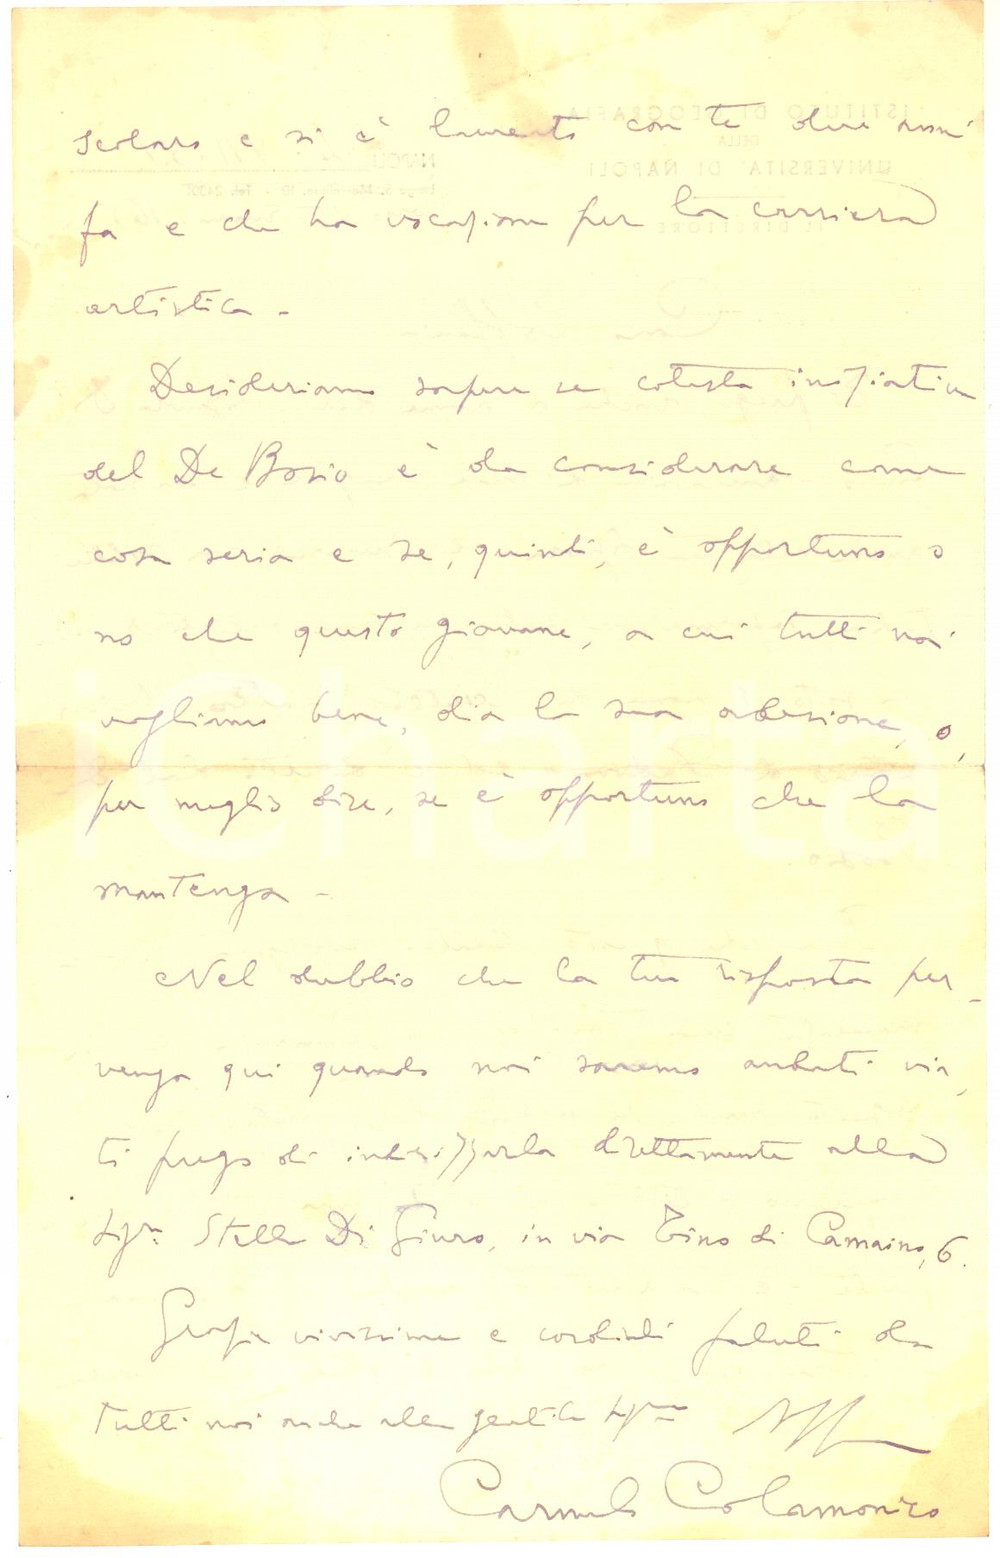 scolaro e si è laureato con te due anni
fa e che ha vocazione per la carriera
artistica -
Desideriamo sapere se cotesta iniziativa
del De Bosio è da considerare come
cosa seria e se, quindi, è opportuno o
no che questo giovane, a cui tutti noi
vogliamo bene, dia la sua adesione, o,
per meglio dire, se è opportuno che la
mantenga -
Nel dubbio che la tua risposta per-
venga qui quando noi saremo andati via,
ti prego di indirizzarla direttamente alla
Sig.ra Stella Di Giuro, in via Tino di Camaino, 6.
Grazie vivissime e cordiali saluti da
tutti noi anche alla gentile Sig.ra Aff
Carmelo Colamonico
ISTITUTO DI GEOGRAFIA
DELLA
UNIVERSITÀ DI NAPOLI
IL DIRETTORE
NAPOLI
iCharta